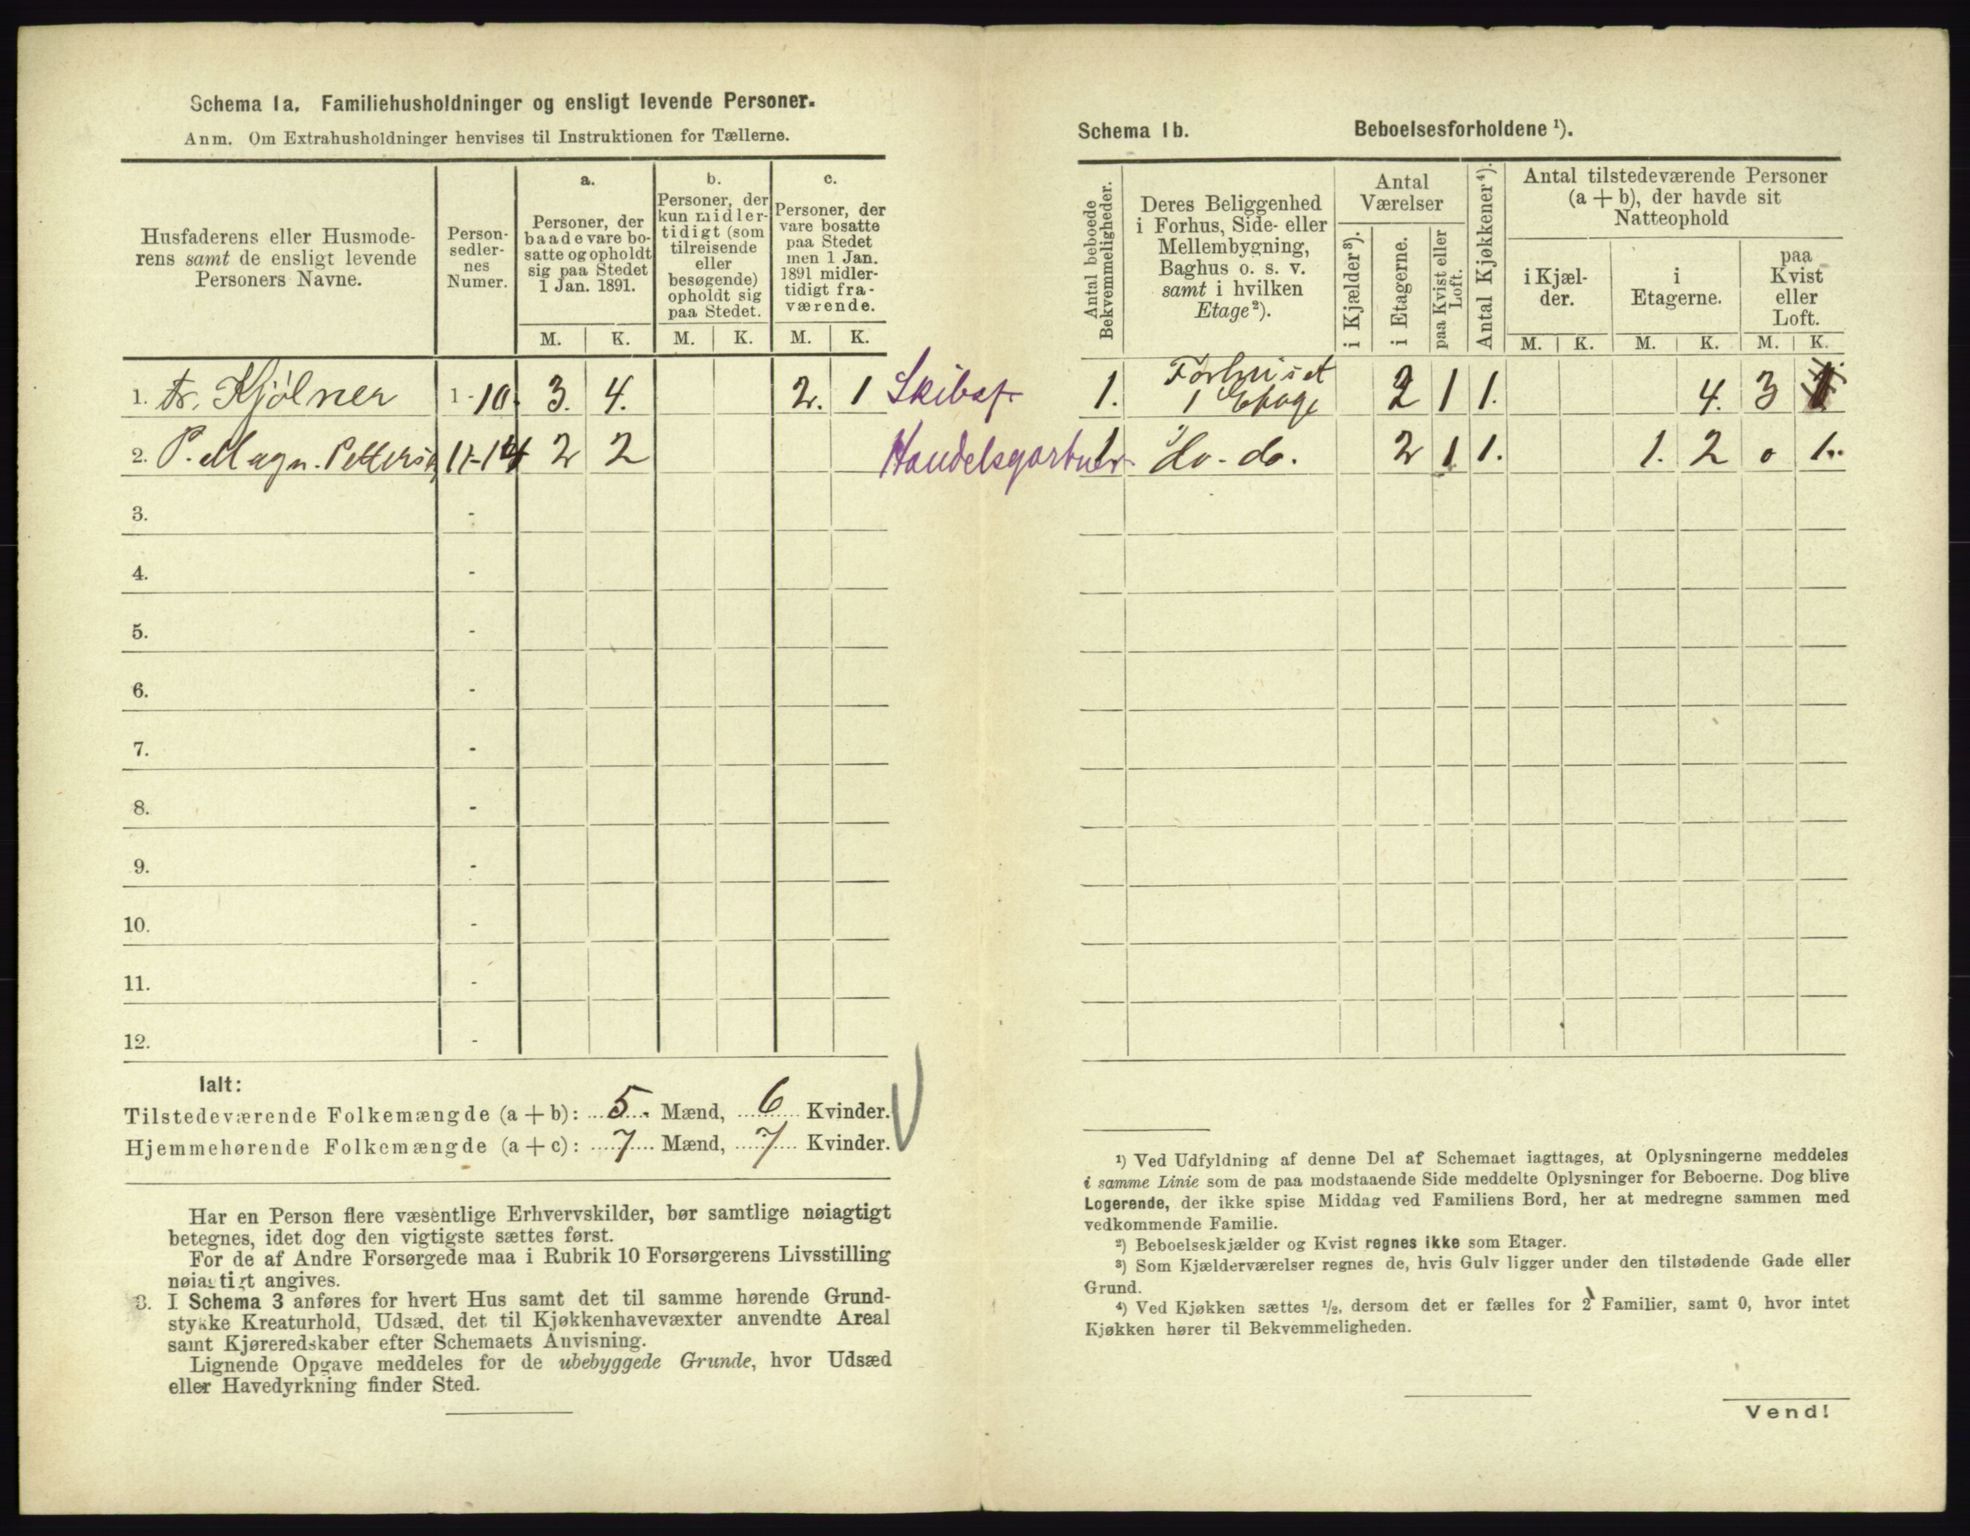 Schema 1a. Familiehusholdninger og ensligt levende Personer.
Anm. Om Extrahusholdninger henvises til Instruktionen for Tællerne.
Husfaderens eller Husmoderens samt de ensligt levende Personers Navne.
Person-
sedler-
nes
Numer.
a.
Personer, der
baade vare bo-
satte og opholdt
sig paa Stedet
1 Jan. 1891.
b.
Personer, der
kun midler-
tidigt (som
tilreisende
eller
besøgende)
opholdt sig
paa Stedet.
c.
Personer, der
vare bosatte
paa Stedet
men 1 Jan.
1891 midler-
tidigt fra-
værende.
M. K. M. K. M. K.
1. Kjølner 1-10. 3. 4. 2. 1 Skibsf.
2. P. Magn. Petters 11-14 2 2 Handelsgartner
3. -
4. -
5. -
6. -
7. -
8. -
9. -
10. -
11. -
12. -
Ialt:
Tilstedeværende Folkemængde (a + b): 5. Mænd, 6 Kvinder.
Hjemmehørende Folkemængde (a + c): 7 Mænd, 7 Kvinder.
Har en Person flere væsentlige Erhvervskilder, bør samtlige nøiagtigt
betegnes, idet dog den vigtigste sættes først.
For de af Andre Forsørgede maa i Rubrik 10 Forsørgerens Livsstilling
nøiagtigt angives.
3. I Schema 3 anføres for hvert Hus samt det til samme hørende Grund-
stykke Kreaturhold, Udsæd, det til Kjøkkenhavevæxter anvendte Areal
samt Kjøreredskaber efter Schemaets Anvisning.
Lignende Opgave meddeles for de ubebyggede Grunde, hvor Udsæd
eller Havedyrkning finder Sted.
Schema 1b. Beboelsesforholdene ¹).
Antal beboede
Bekvemmeligheder.
Deres Beliggenhed
i Forhus, Side- eller
Mellembygning,
Baghus o. s. v.
samt i hvilken
Etage²).
Antal
Værelser
i Kjælder³).
i Etagerne.
paa Kvist eller
Loft.
Antal Kjøkkener⁴).
Antal tilstedeværende Personer
(a + b), der havde sit
Natteophold
i Kjæl-
der.
i
Etagerne.
paa
Kvist
eller
Loft.
M. K. M. K. M. K.
1. Forhuset
1 Etage 2 1 1. 4. 3 1
1 do. do. 2 1 1. 1. 2 0 1.
¹) Ved Udfyldning af denne Del af Schemaet iagttages, at Oplysningerne meddeles
i samme Linie som de paa modstaaende Side meddelte Oplysninger for Beboerne. Dog blive
Logerende, der ikke spise Middag ved Familiens Bord, her at medregne sammen med
vedkommende Familie.
²) Beboelseskjælder og Kvist regnes ikke som Etager.
³) Som Kjælderværelser regnes de, hvis Gulv ligger under den tilstødende Gade eller
Grund.
⁴) Ved Kjøkken sættes ½, dersom det er fælles for 2 Familier, samt 0, hvor intet
Kjøkken hører til Bekvemmeligheden.
Vend!